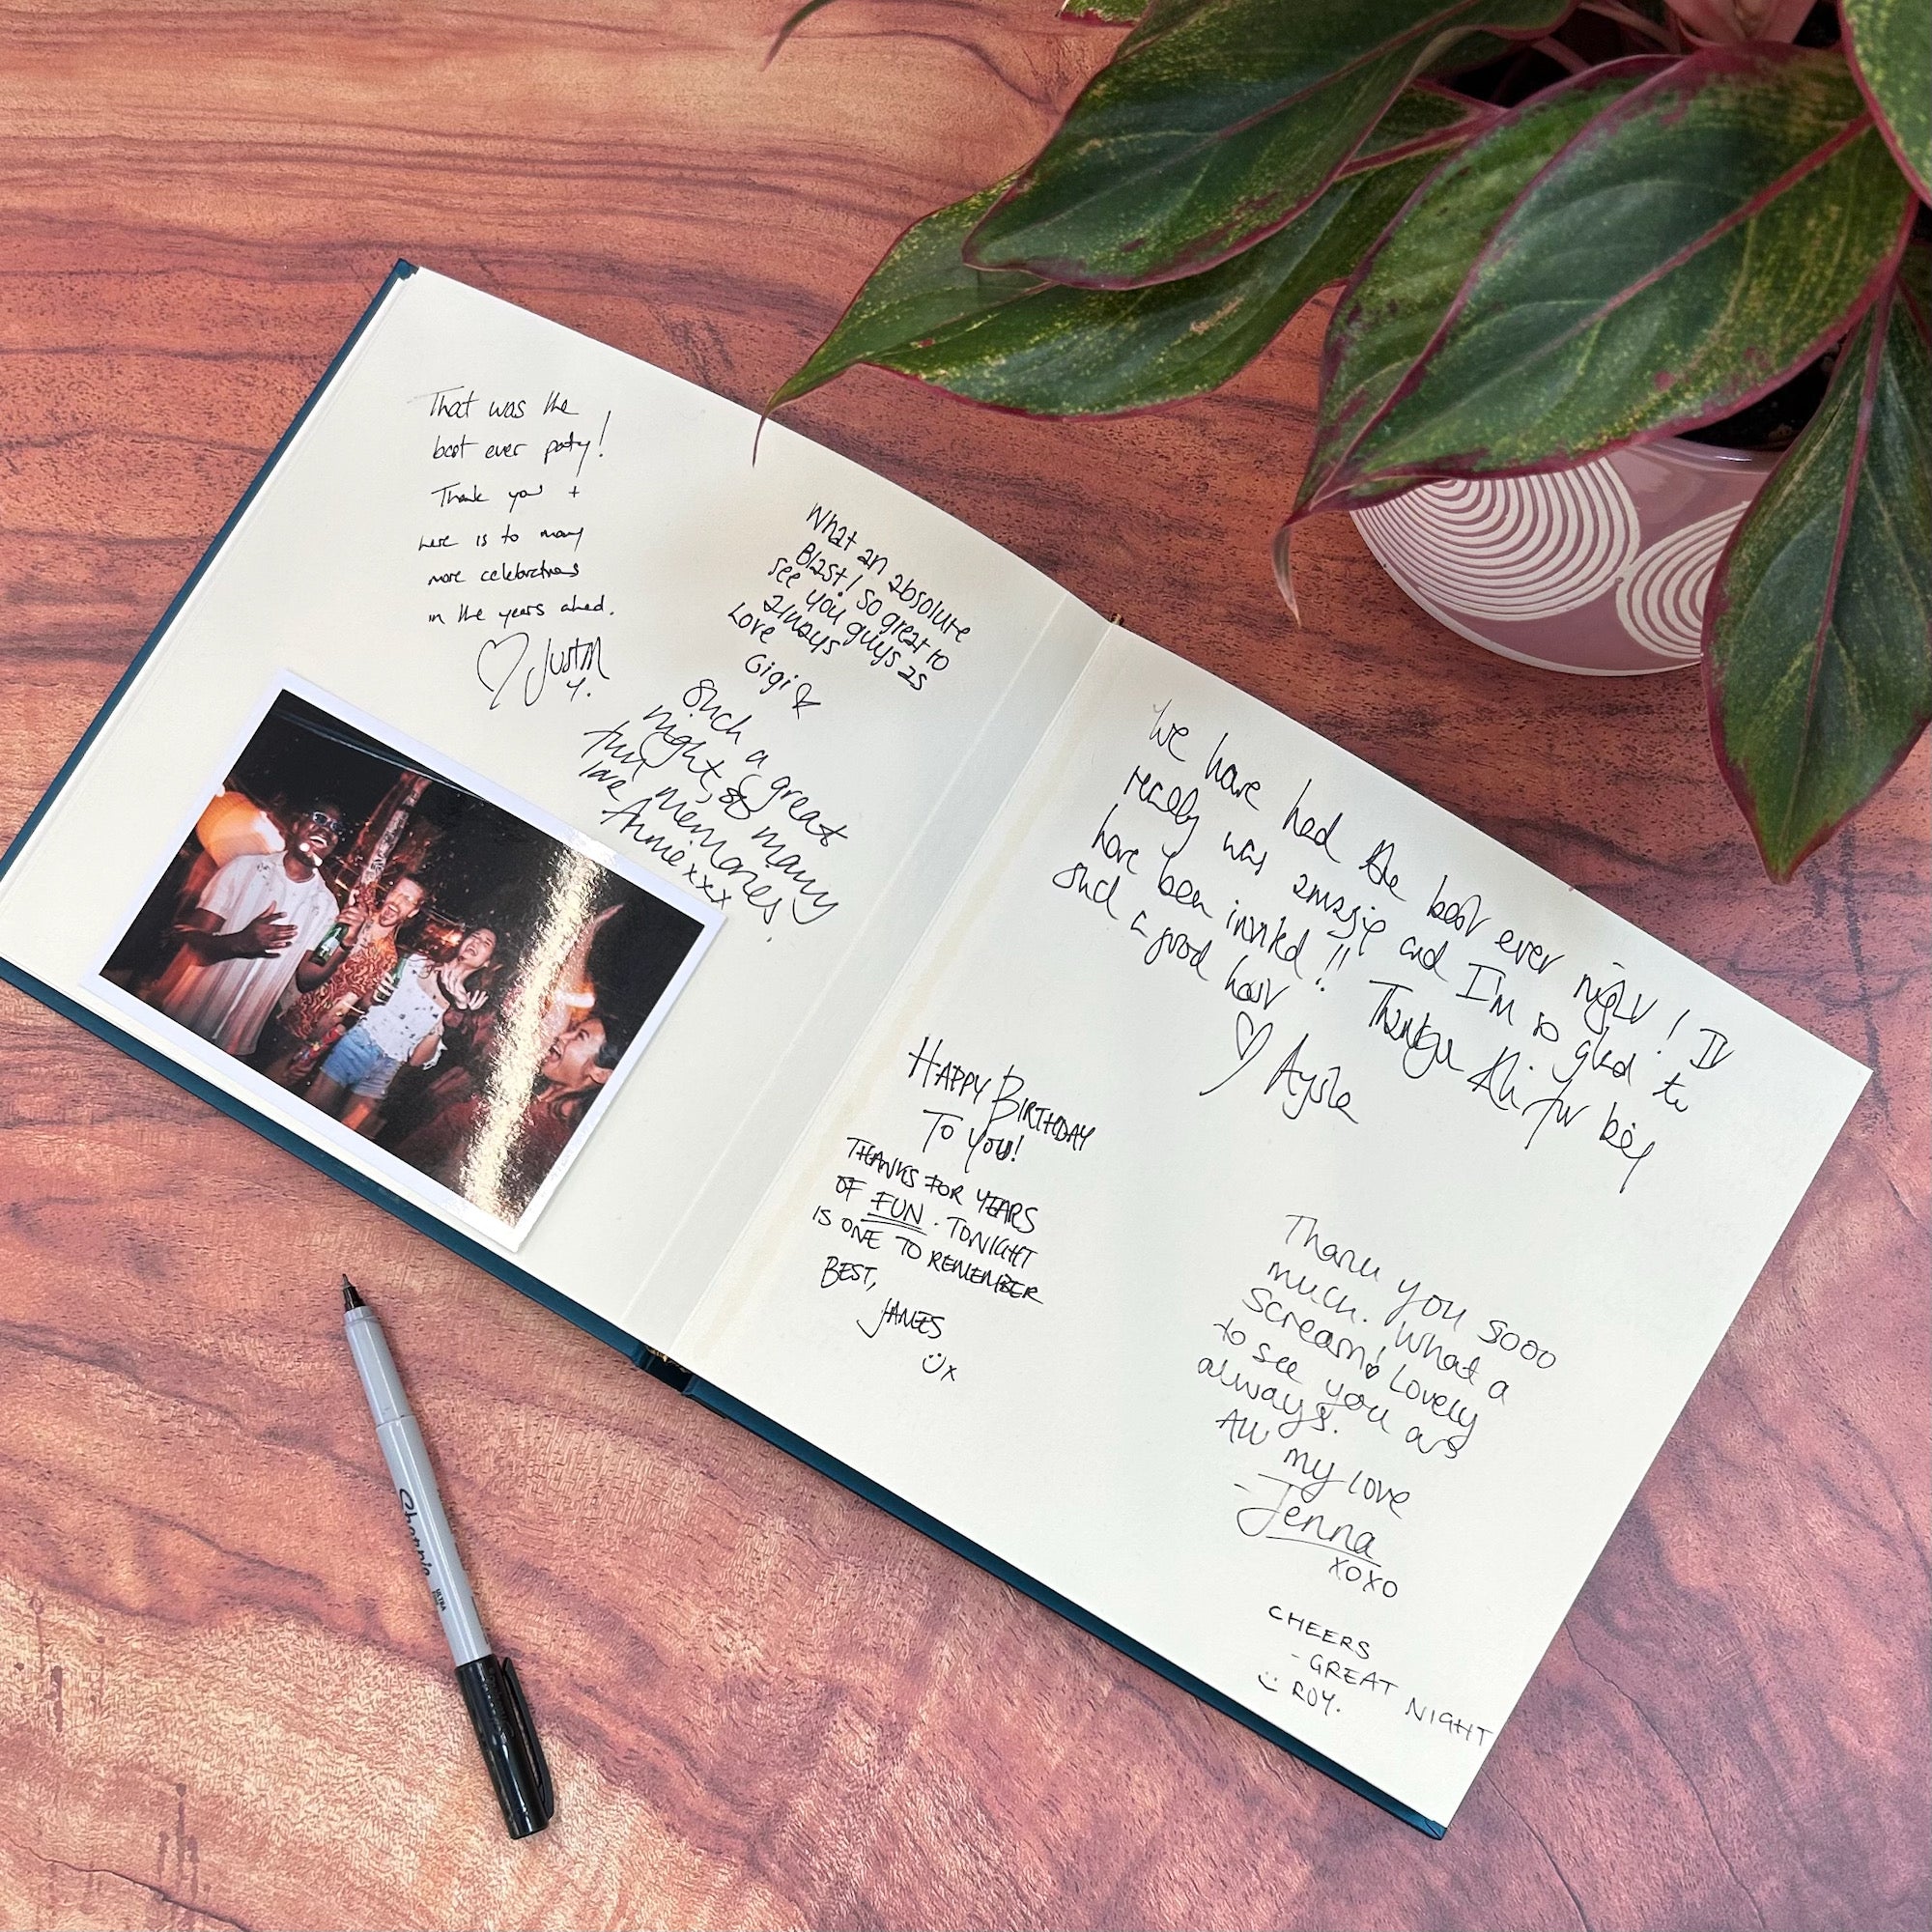 That was the
best ever party!
Thank you +
here is to many
more celebrations
in the years ahead.
♡ Justin
Y.
What an absolute
Blast! So great to
see you guys as
always
Love
Gigi
Such a great
night, & so many
fun memories.
love
Annie xxx
We have had the best ever night! It
really was amazing and I'm so glad to
have been invited!! Thankyou Ali for being
such a good host
♡ Aysla
HAPPY BIRTHDAY
TO YOU!
THANKS FOR YEARS
OF FUN. TONIGHT
IS ONE TO REMEMBER
BEST,
JAMES
x
Thank you sooo
much. What a
scream! Lovely
to see you as
always.
All my love
-Jenna
xoxo
CHEERS
- GREAT NIGHT
ROY.
Sharpie
ULTRA